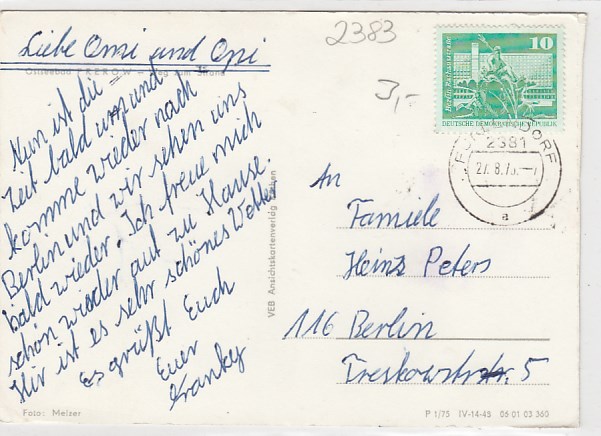 Liebe Omi und Opi
Ostseebad PREROW — Weg zum Strand
Nun ist die
Zeit bald um und
komme wieder nach
Berlin und wir sehen uns
bald wieder. Ich freue mich
schön wieder auf zu Hause.
Hir ist es sehr schönes Wetter
Es grüßt Euch
Euer
Franky
Foto: Melzer
VEB Ansichtskartenverlag
2383
3,-
10
Berlin
DEUTSCHE DEMOKRATISCHE REPUBLIK
2381
27.8.75
a
An
Familie
Heinz Peters
116 Berlin
Treskowstr. 5
P 1/75 IV-14-45 06 01 03 360